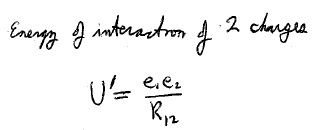 Energy of interaction of 2 charges
U' = e₁e₂ / R₁₂